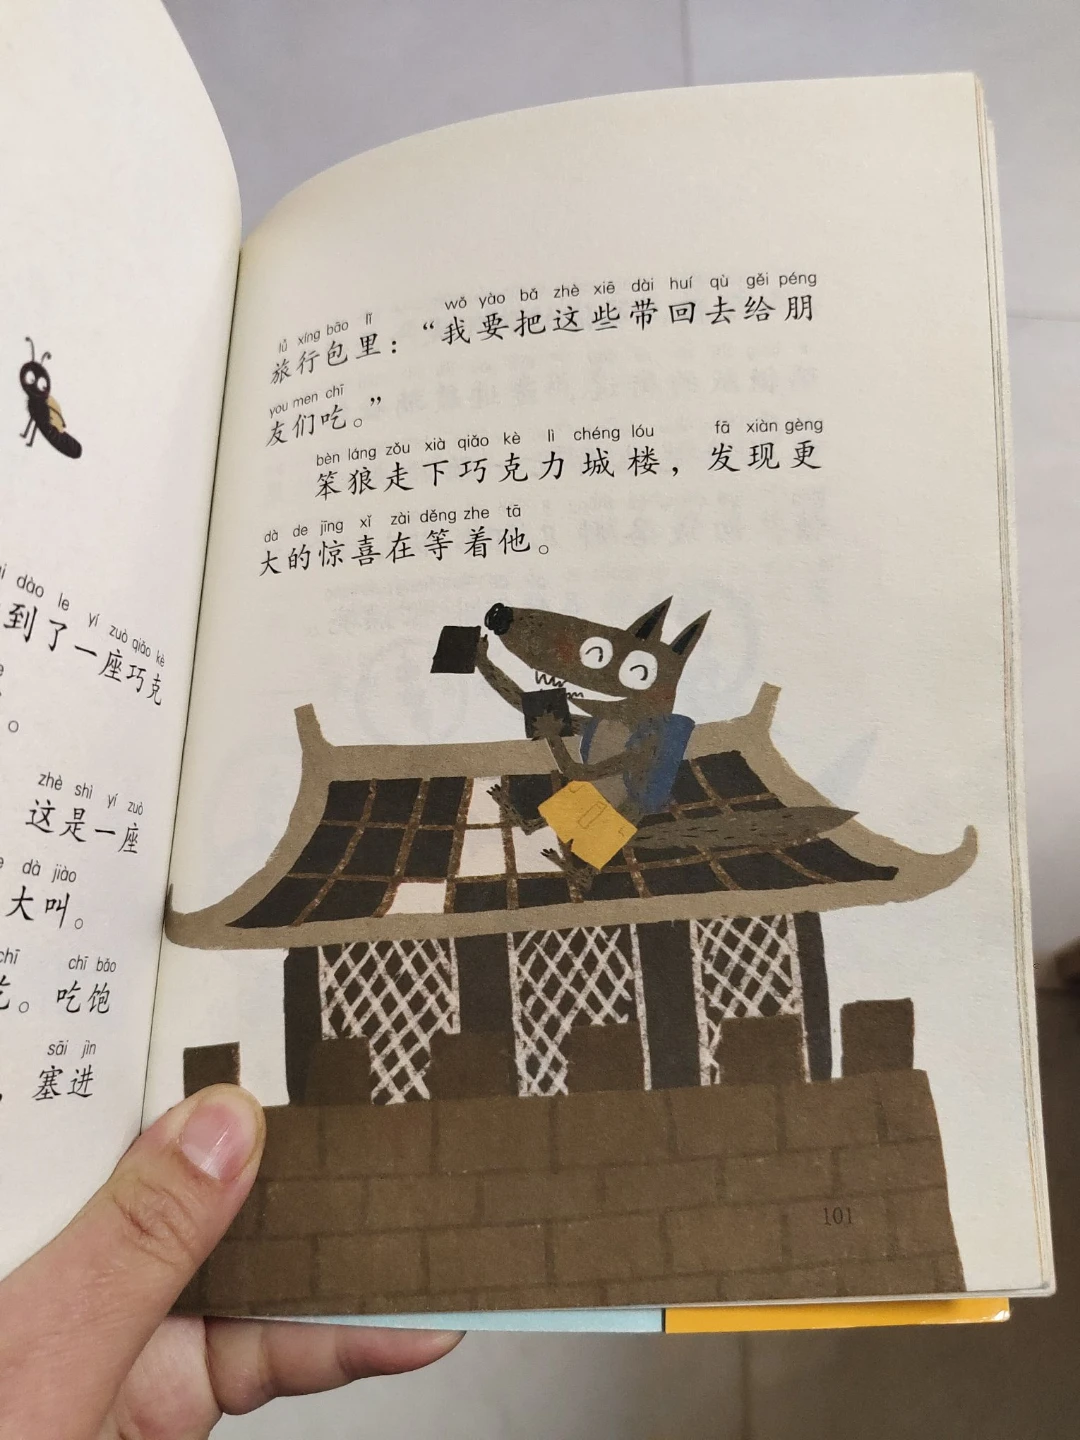 ai dào le yí zuò qiǎo kè
到了一座巧克
。
zhè shì yí zuò
这是一座
dà jiào
大叫。
chī chī bǎo
吃。吃饱
sāi jìn
，塞进
lǚ xíng bāo lǐ wǒ yào bǎ zhè xiē dài huí qù gěi péng
旅行包里：“我要把这些带回去给朋
you men chī
友们吃。”
bèn láng zǒu xià qiǎo kè lì chéng lóu fā xiàn gèng
笨狼走下巧克力城楼，发现更
dà de jīng xǐ zài děng zhe tā
大的惊喜在等着他。
101